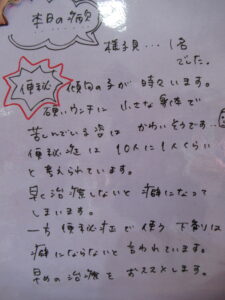 本日の病欠
様子見…1名
でした。
便秘 傾向の子が 時々います。
硬いウンチに 小さな身体で
苦しんでいる姿は かわいそうです…
便秘症は 10人に1人くらい
と考えられています。
早く治療しないと 癖になって
しまいます。
一方 便秘症で使う 下剤は
癖にならないと 言われています。
早めの治療を おススメします。